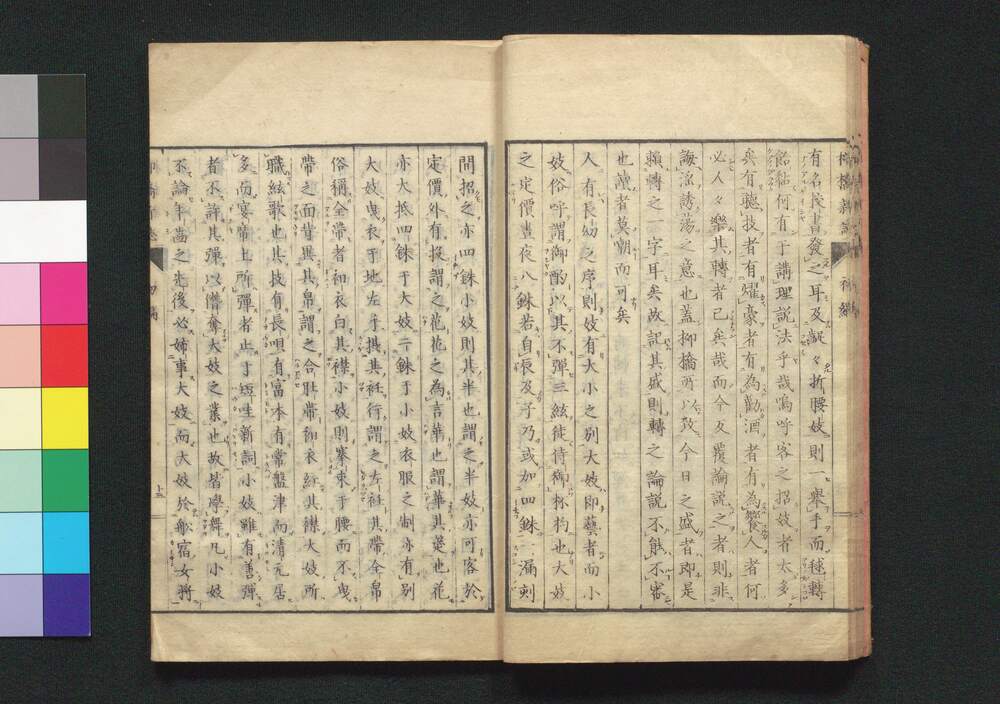 有名長書發之耳及凝々折腰妓則一擧手而毬轉
飴黏何有于講理説法乎哉嗚呼客之招妓者太多
矣有聽技者有燿豪者有為勸酒者有為饗人者何
必人々樂其轉者已矣哉而今反覆論説之者則非
誨淫誘蕩之意也蓋柳橋所以致今日之盛者即是
賴轉之一字耳矣故記其盛則轉之論説不能不審
也讀者莫嘲而可矣
人有長幼之序則妓有大小之別大妓即藝者而小
妓俗呼謂御酌以其不彈三絃徒侍御杯杓也大妓
之定價晝夜八銖若自辰及子乃或加四銖二漏刻
間招之亦四銖小妓則其半也謂之半妓亦可客於
定價外有投謂之花花之為言華也謂華其筵也花
亦大抵四銖于大妓二銖于小妓衣服之制亦有別
大妓曳衣于地左手摂其袵行謂之左袵其帶全帛
俗稱全帶者和衣白其襟小妓則搴束于腰而不曳
帶之面背異其帛謂之合肚帶和衣紅其襟大妓所
職絃歌也其技有長唄有富本有常盤津而清元居
多而宴席上所彈者止于短生新詞小妓雖有善彈
者不許其彈以僭奪大妓之業也故皆學舞凡小妓
不論年齒之先後必姉事大妓而大妓於船宿女將